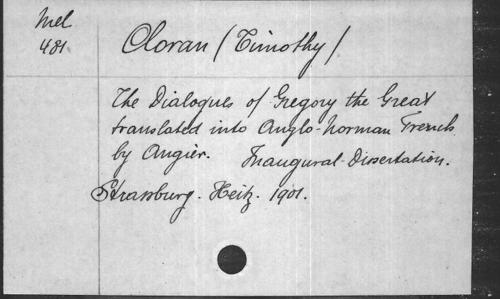 Mel
481
Cloran (Timothy)
The Dialogues of Gregory the Great
translated into Anglo-Norman French
by Angier. Inaugural-Dissertation.
Strassburg. Heitz. 1901.